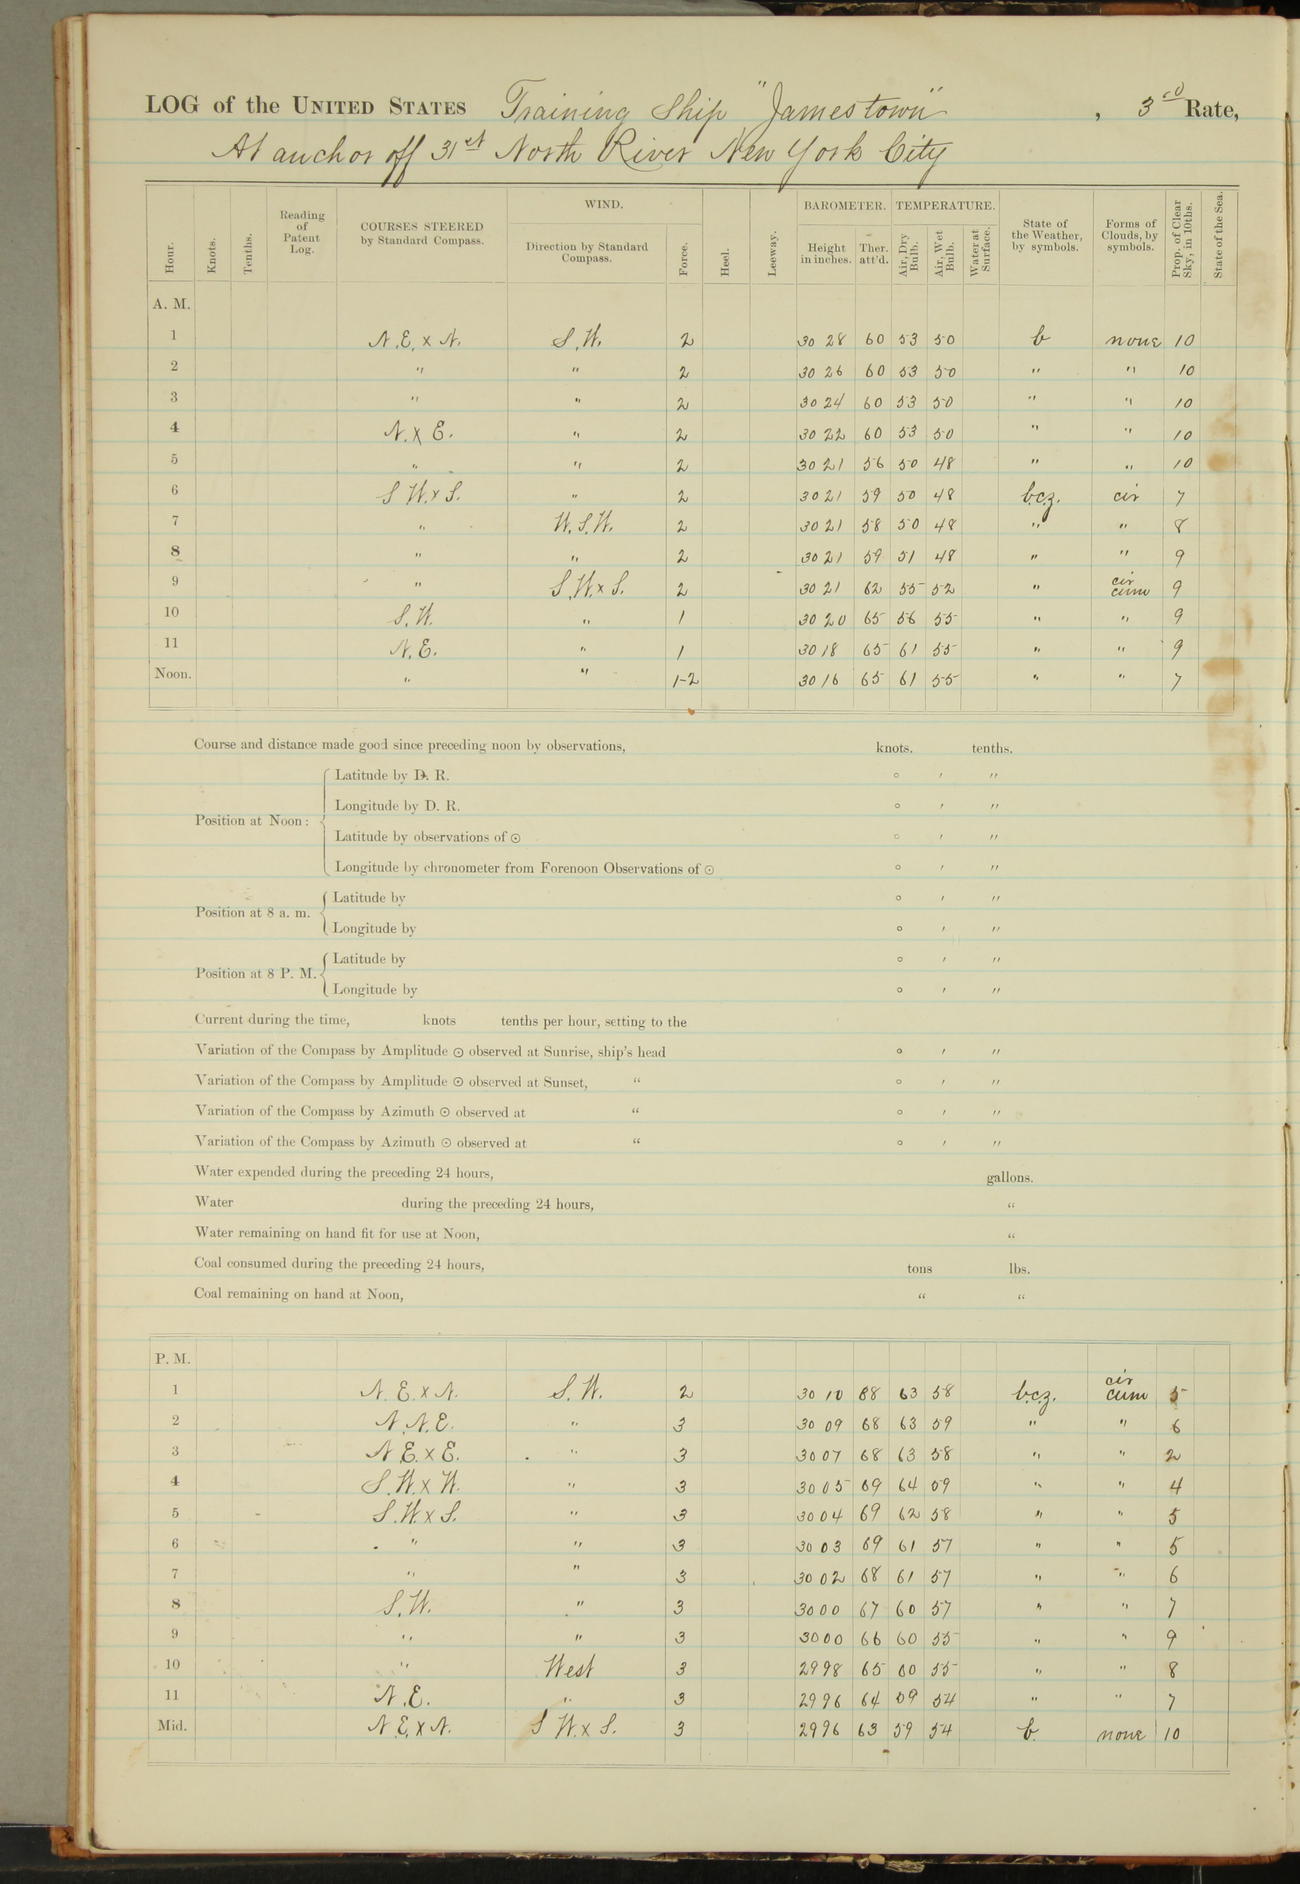 LOG of the UNITED STATES Training Ship "Jamestown", 3rd Rate,
At anchor off 31st North River New York City
Hour. Knots. Tenths. Reading of Patent Log. COURSES STEERED by Standard Compass. WIND. Direction by Standard Compass. Force. Heel. Leeway. BAROMETER. Height in inches. Ther. att'd. TEMPERATURE. Air, Dry Bulb. Air, Wet Bulb. Water at Surface. State of the Weather, by symbols. Forms of Clouds, by symbols. Prop. of Clear Sky, in 10ths. State of the Sea.
A. M.
1 N.E. x N. S.W. 2 30 28 60 53 50 b none 10
2 " " 2 30 26 60 53 50 " " 10
3 " " 2 30 24 60 53 50 " " 10
4 N. x E. " 2 30 22 60 53 50 " " 10
5 " " 2 30 21 56 50 48 " " 10
6 S W. x S. " 2 30 21 59 50 48 b.c.z. cir 7
7 " W.S.W. 2 30 21 58 50 48 " " 8
8 " " 2 30 21 59 51 48 " " 9
9 " S.W. x S. 2 30 21 62 55 52 " cir cum 9
10 S.W. " 1 30 20 65 56 55 " " 9
11 N.E. " 1 30 18 65 61 55 " " 9
Noon. " " 1-2 30 16 65 61 55 " " 7
Course and distance made good since preceding noon by observations, knots. tenths.
Position at Noon: Latitude by D. R. ° ′ ″
Longitude by D. R. ° ′ ″
Latitude by observations of ☉ ° ′ ″
Longitude by chronometer from Forenoon Observations of ☉ ° ′ ″
Position at 8 a. m. Latitude by ° ′ ″
Longitude by ° ′ ″
Position at 8 P. M. Latitude by ° ′ ″
Longitude by ° ′ ″
Current during the time, knots tenths per hour, setting to the
Variation of the Compass by Amplitude ☉ observed at Sunrise, ship's head ° ′ ″
Variation of the Compass by Amplitude ☉ observed at Sunset, " ° ′ ″
Variation of the Compass by Azimuth ☉ observed at " ° ′ ″
Variation of the Compass by Azimuth ☉ observed at " ° ′ ″
Water expended during the preceding 24 hours, gallons.
Water during the preceding 24 hours, "
Water remaining on hand fit for use at Noon, "
Coal consumed during the preceding 24 hours, tons lbs.
Coal remaining on hand at Noon, " "
P. M.
1 N. E. x N. S.W. 2 30 10 68 63 58 b.c.z. cir cum 5
2 N.N.E. " 3 30 09 68 63 59 " " 6
3 N E. x E. " 3 30 07 68 63 58 " " 2
4 S.W. x W. " 3 30 05 69 64 59 " " 4
5 S.W. x S. " 3 30 04 69 62 58 " " 5
6 " " 3 30 03 69 61 57 " " 5
7 " " 3 30 02 68 61 57 " " 6
8 S.W. " 3 30 00 67 60 57 " " 7
9 " " 3 30 00 66 60 55 " " 9
10 " West 3 29 98 65 60 55 " " 8
11 N.E. " 3 29 96 64 59 54 " " 7
Mid. N E. x N. S W. x S. 3 29 96 63 59 54 b. none 10